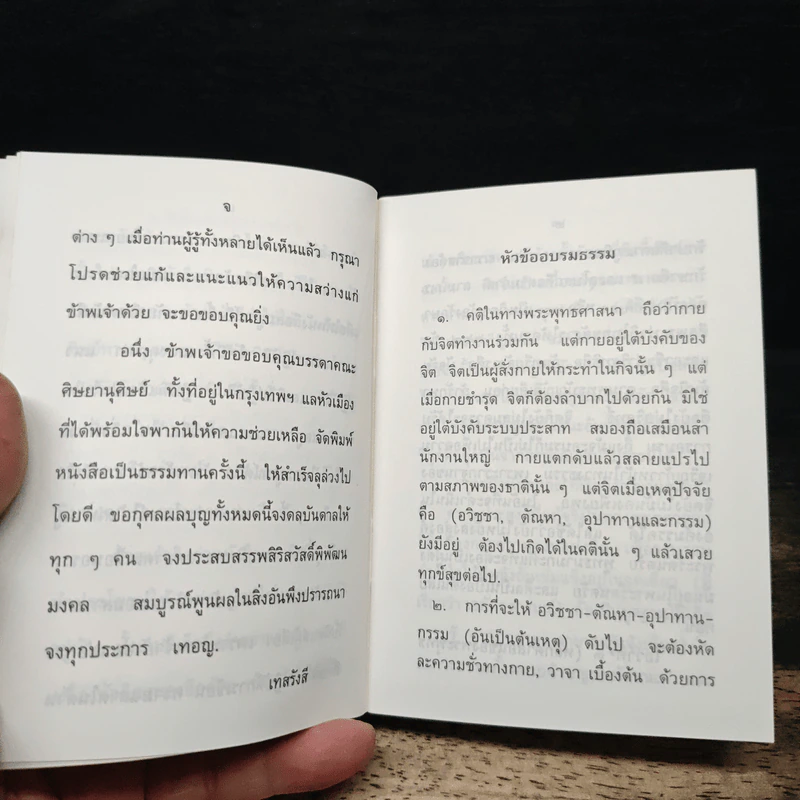 จ
ต่าง ๆ เมื่อท่านผู้รู้ทั้งหลายได้เห็นแล้ว กรุณา
โปรดช่วยแก้และแนะแนวให้ความสว่างแก่
ข้าพเจ้าด้วย จะขอขอบคุณยิ่ง
อนึ่ง ข้าพเจ้าขอขอบคุณบรรดาคณะ
ศิษยานุศิษย์ ทั้งที่อยู่ในกรุงเทพฯ แลหัวเมือง
ที่ได้พร้อมใจพากันให้ความช่วยเหลือ จัดพิมพ์
หนังสือเป็นธรรมทานครั้งนี้ ให้สำเร็จลุล่วงไป
โดยดี ขอกุศลผลบุญทั้งหมดนี้จงดลบันดาลให้
ทุก ๆ คน จงประสบสรรพสิริสวัสดิ์พิพัฒน
มงคล สมบูรณ์พูนผลในสิ่งอันพึงปรารถนา
จงทุกประการ เทอญ.
เทสรังสี
หัวข้ออบรมธรรม
๑. คติในทางพระพุทธศาสนา ถือว่ากาย
กับจิตทำงานร่วมกัน แต่กายอยู่ใต้บังคับของ
จิต จิตเป็นผู้สั่งกายให้กระทำในกิจนั้น ๆ แต่
เมื่อกายชำรุด จิตก็ต้องลำบากไปด้วยกัน มิใช่
อยู่ใต้บังคับระบบประสาท สมองถือเสมือนสำ
นักงานใหญ่ กายแตกดับแล้วสลายแปรไป
ตามสภาพของธาตินั้น ๆ แต่จิตเมื่อเหตุปัจจัย
คือ (อวิชชา, ตัณหา, อุปาทานและกรรม)
ยังมีอยู่ ต้องไปเกิดได้ในคตินั้น ๆ แล้วเสวย
ทุกข์สุขต่อไป.
๒. การที่จะให้ อวิชชา-ตัณหา-อุปาทาน-
กรรม (อันเป็นต้นเหตุ) ดับไป จะต้องหัด
ละความชั่วทางกาย, วาจา เบื้องต้น ด้วยการ